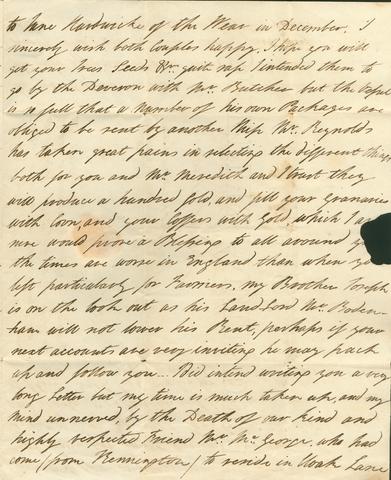 to Jane Hardwicke of the Wear in December. I
sincerely wish both Couples happy. I hope you will
get your Trees Seeds &c. quite safe I intended them to
go by the Deveron with Mr. Butcher but the Vessel
is so full that a Number of his own Packages are
obliged to be sent by another Ship Mr. Reynolds
has taken great pains in selecting the different things
both for you and Mr. Meredith and I trust they
will produce a hundred fold, and fill your Granaries
with Corn, and your Coffers with Gold, which I am
sure would prove a Blessing to all around
the times are worse in England than when you
left particularly for Farmers. my Brother Joseph
is on the look out as his Land Lord Mr. Boden-
ham will not lower his Rent, perhaps if your
next accounts are very inviting he may pack
up and follow you... I did intend writing you a very
long Letter but my time is much taken up, and my
Mind unnerved, by the Death of our kind and
highly respected Friend Mrs. Mc.George, who had
come (from Kennington) to reside in Lane